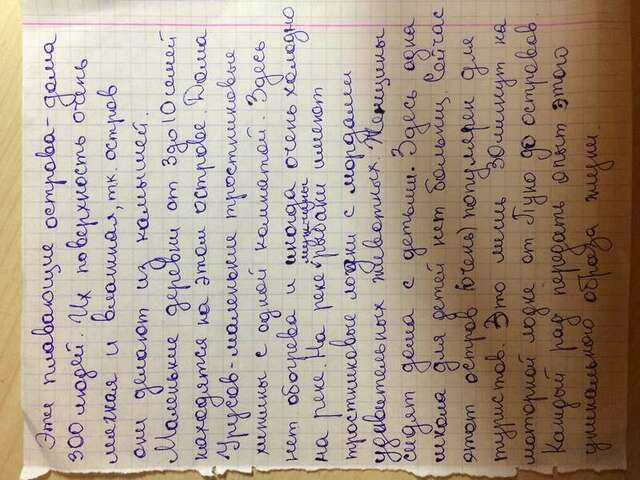 Эти плавающие острова - дома
300 людей. Их поверхность очень
мягкая и влажная, т.к. остров
они делают из камышей.
Маленькие деревни от 3 до 10 семей
находятся на этом острове. Дома
Урусов - маленькие тростниковые
хижины с одной комнатой. Здесь
нет обогрева и иногда очень холодно
мужчины
на реке. На реке рыбаки имеют
тростниковые лодки с мордами
удивительных животных. Женщины
сидят дома с детьми. Здесь одна
школа для детей нет больниц. Сейчас
этот остров (очень) популярен для
туристов. Это лишь 30 минут на
моторной лодке от Пуно до островов.
Каждый рад передать опыт этого
уникального образа жизни.